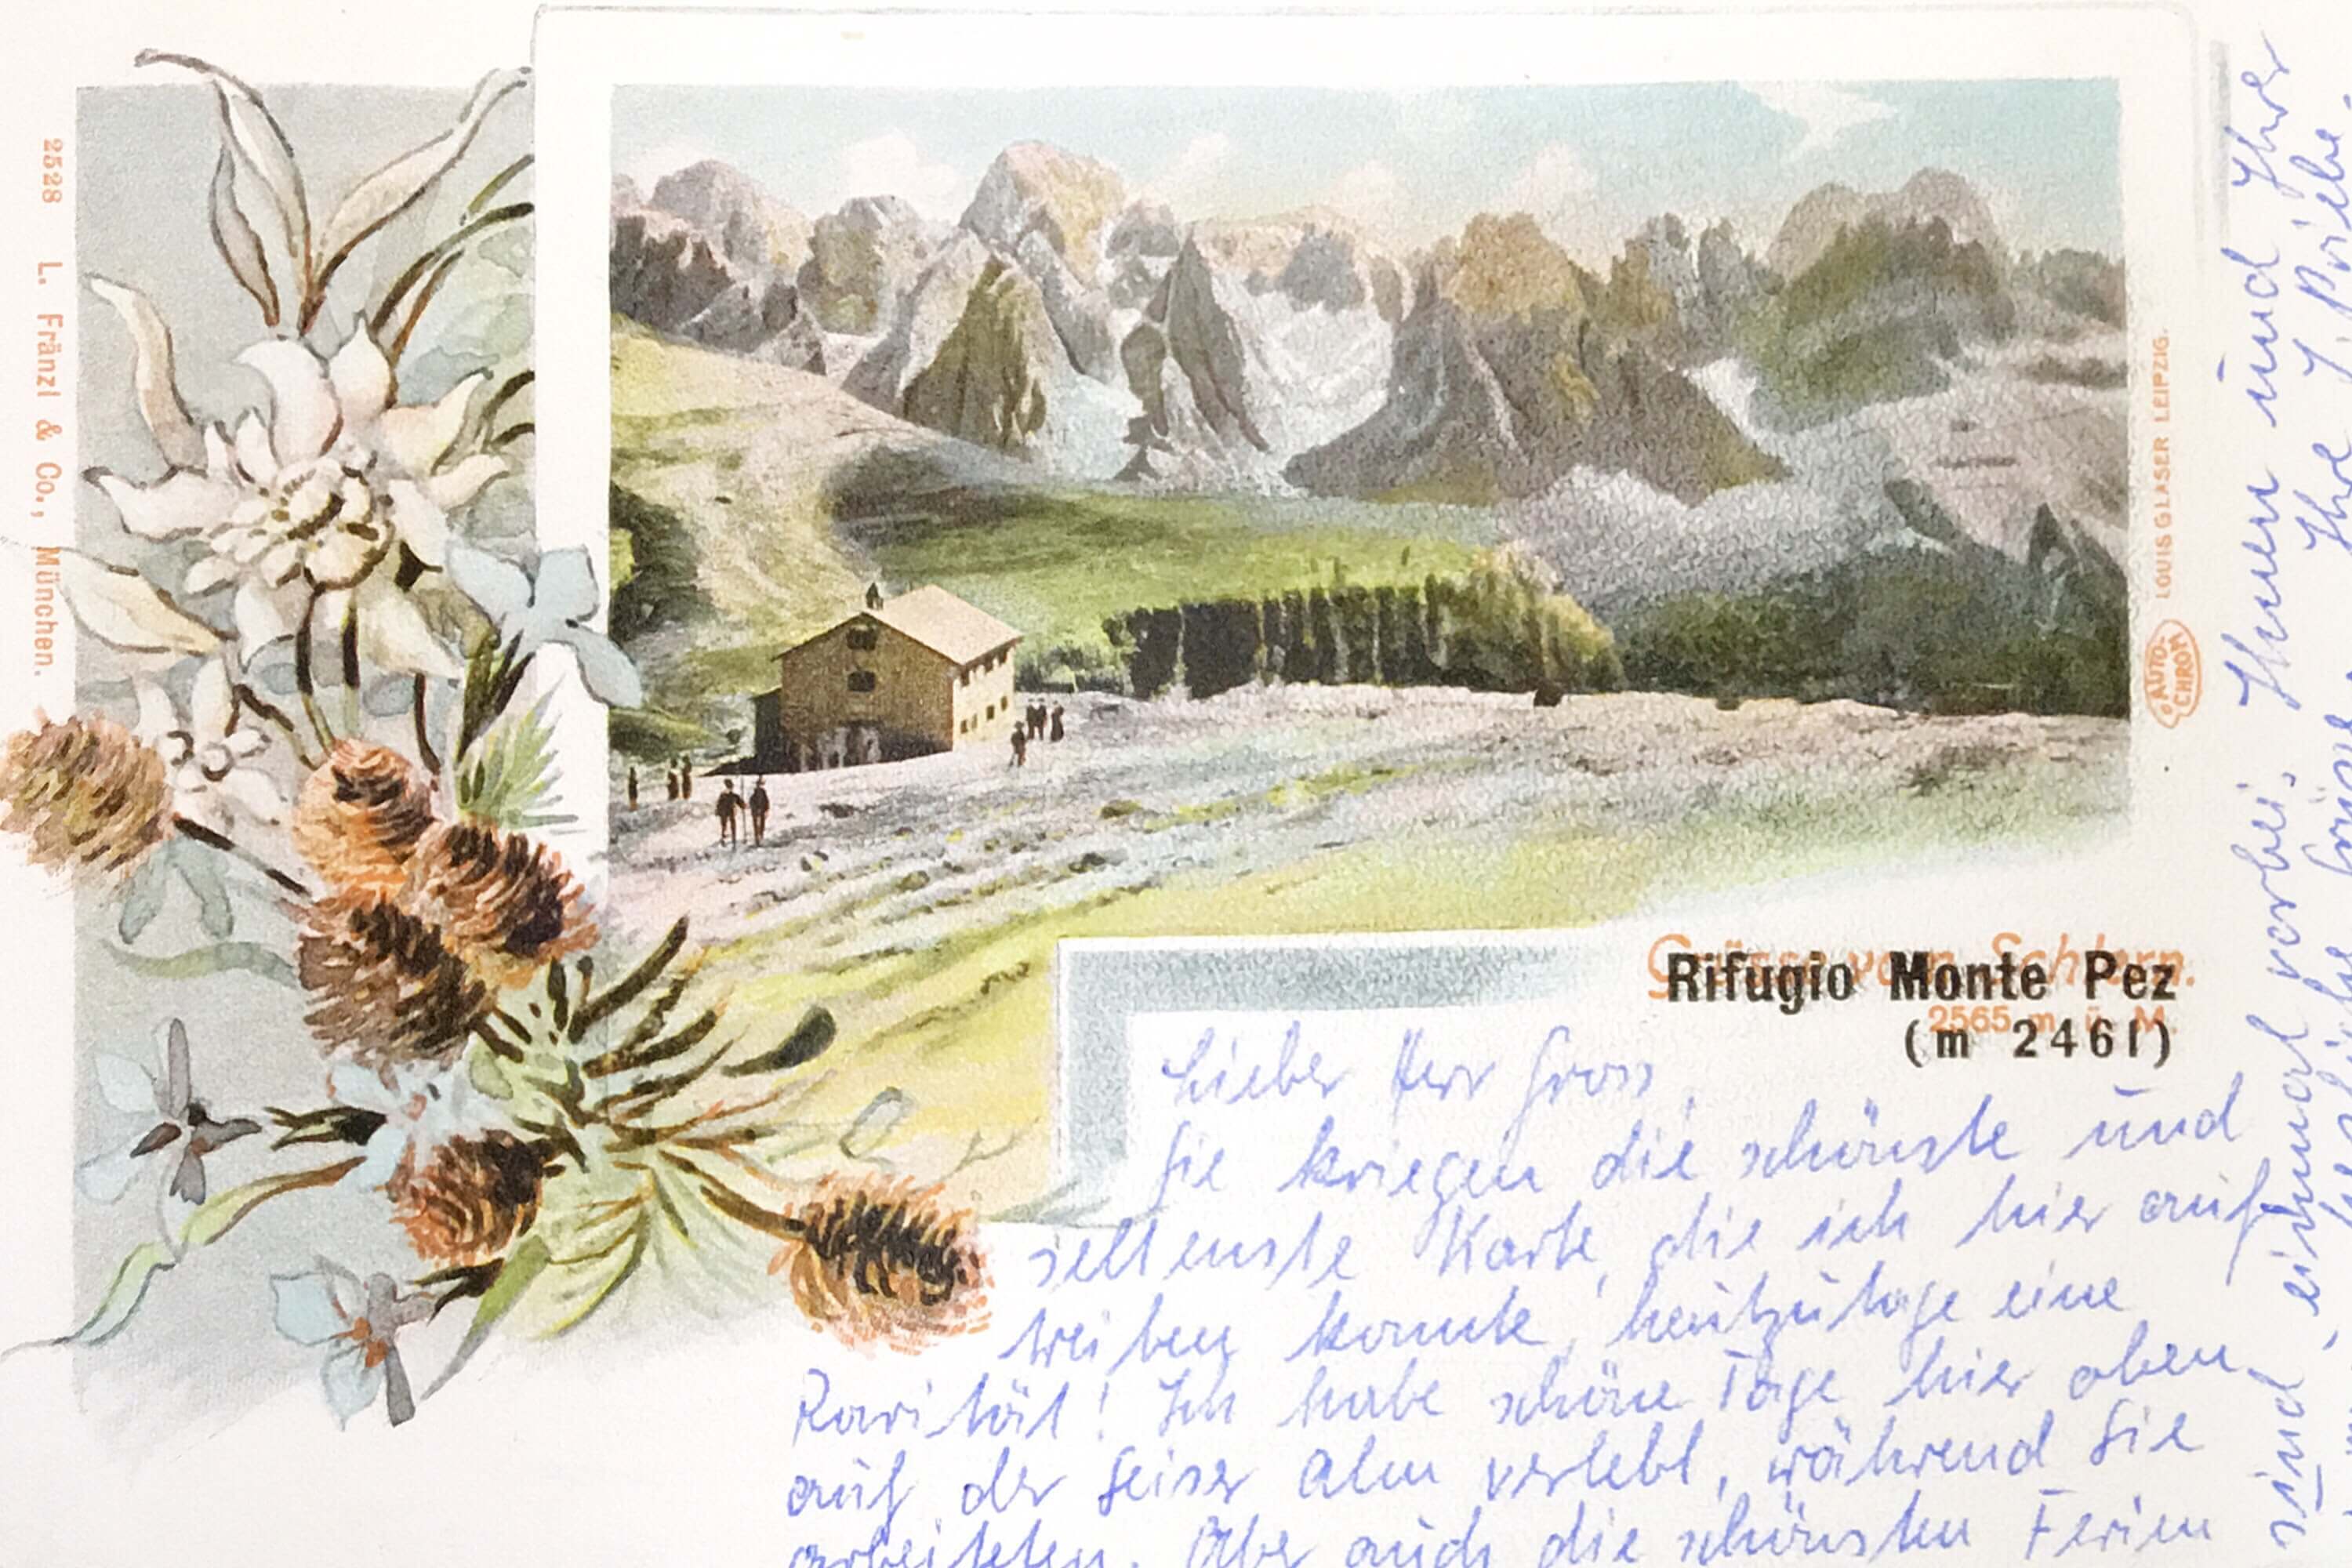 2528 L. Fränzl & Co., München.
LOUIS GLASER LEIPZIG.
AUTO-
CHROM
Grüsse vom Schlern.
2565 m. ü. M.
Rifugio Monte Pez
(m 2461)
Lieber Herr Gross,
Sie kriegen die schönste und
seltenste Karte, die ich hier auf
treiben konnte, heutzutage eine
Rarität! Ich habe schöne Tage hier oben
auf der Seiser Alm verlebt, während Sie
arbeiteten. Aber auch die schönsten Ferien
sind einmal vorbei. Ihnen und Ihrer
Grüsse Ihre